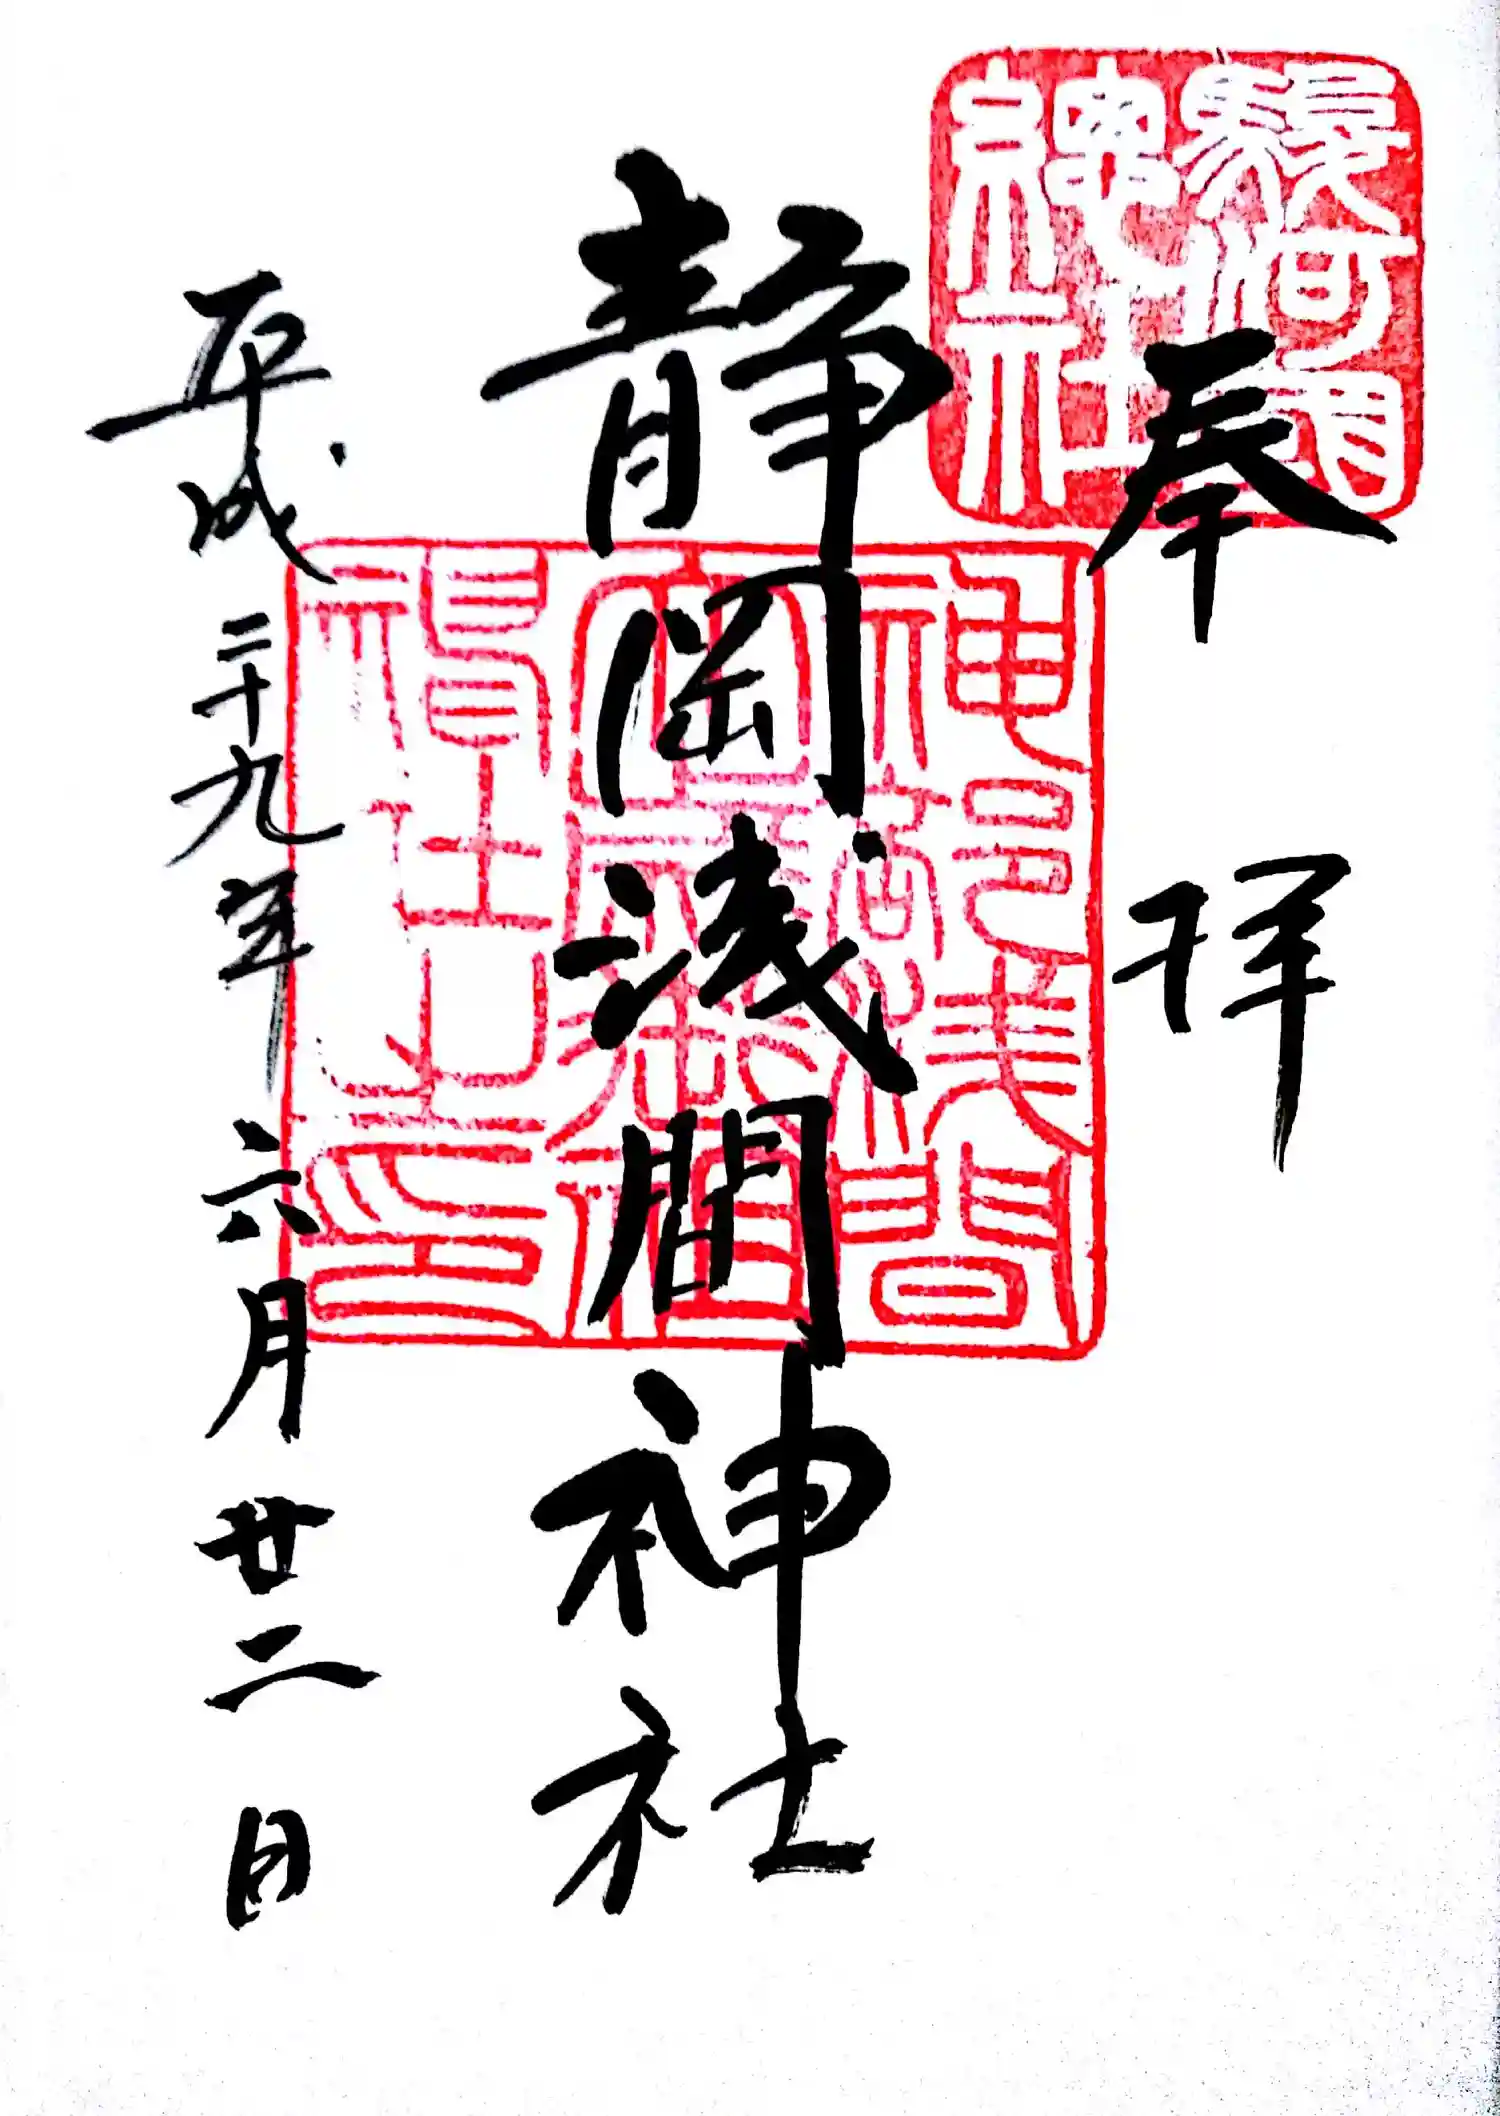 駿河國
總社
奉拝
静岡浅間神社
神部浅間
大歳御祖
神社之印
平成二十九年六月廿二日